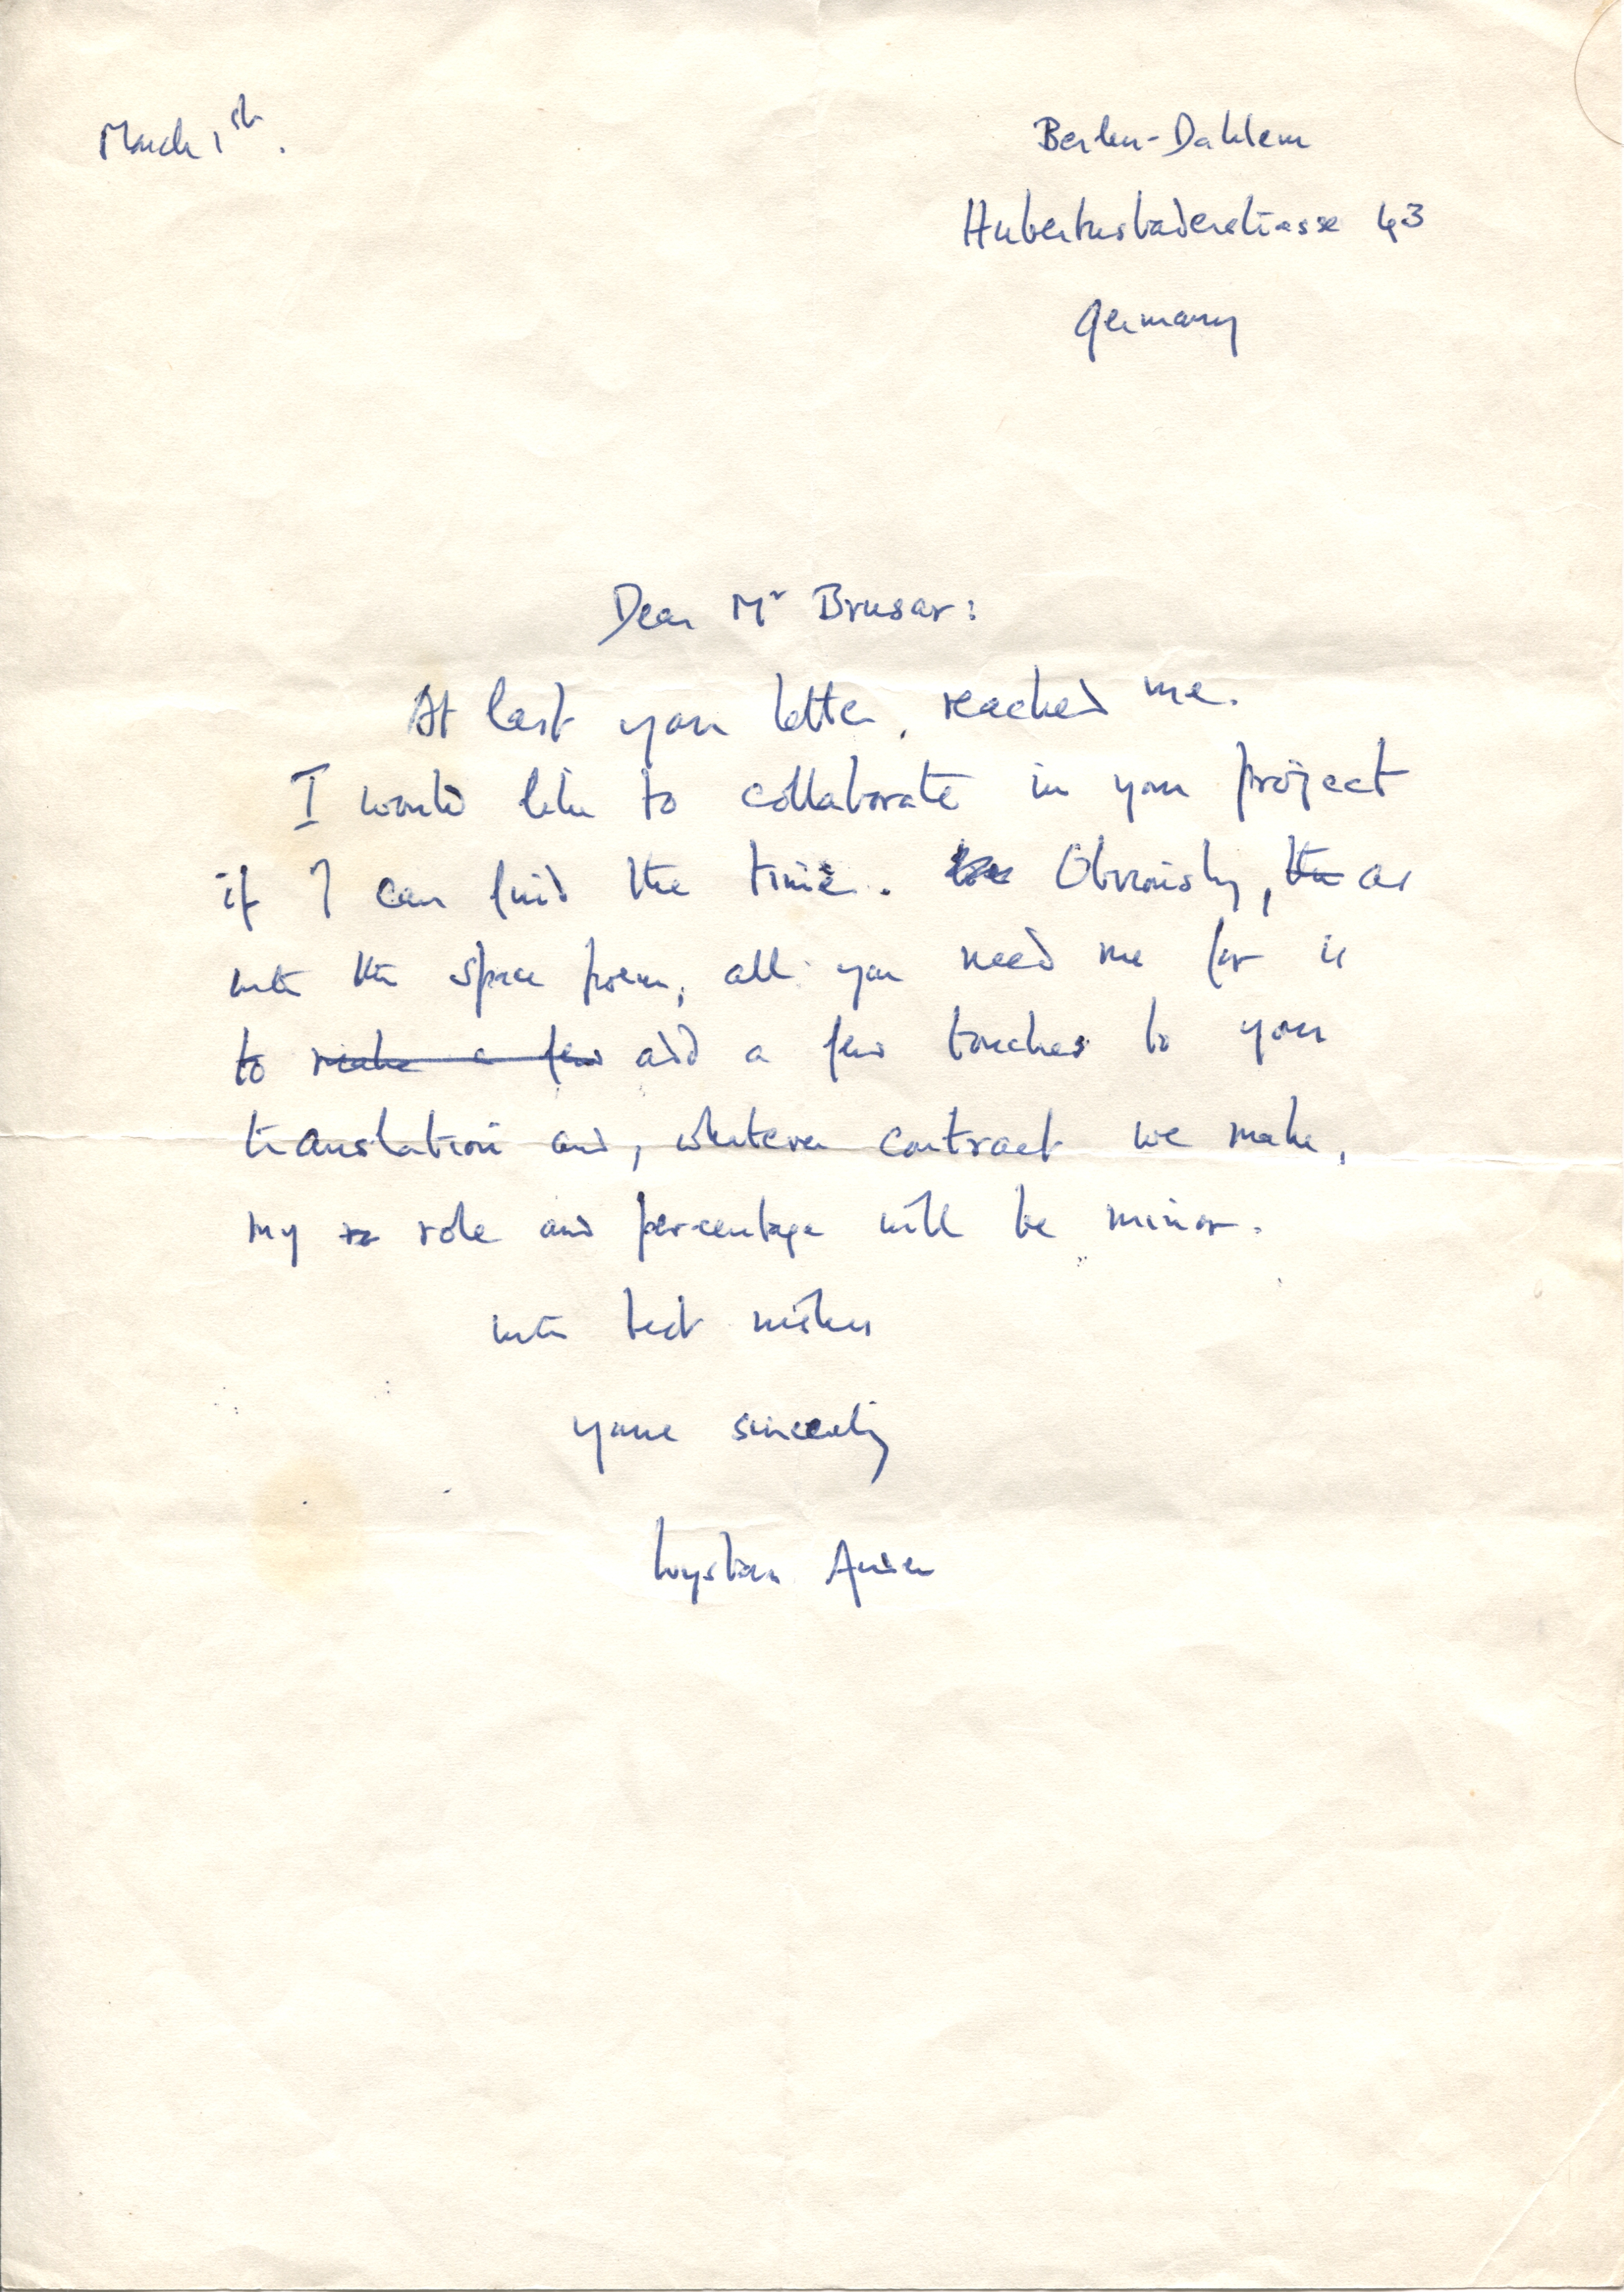 March 1st.
Berlin-Dahlem
Hubertusbaderstrasse 43
Germany
Dear Mr Brusar:
At last your letter, reached me.
I would like to collaborate in your project
if I can find the time. Obviously, the as
with the space poem, all you need me for is
to make a few add a few touches to your
translation and, whatever contract we make,
my ro role and percentage will be minor.
with best wishes
yours sincerely
Wystan Auden